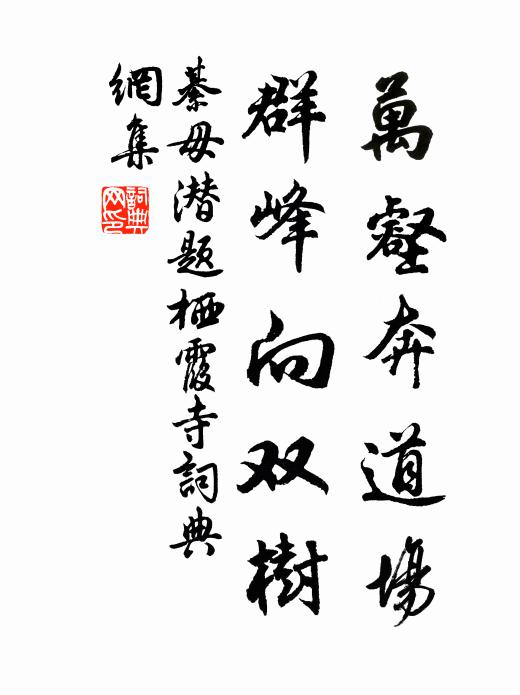 萬壑奔道場
群峰向双樹
綦毋潜题栖霞寺詞典
網集
詞典网印